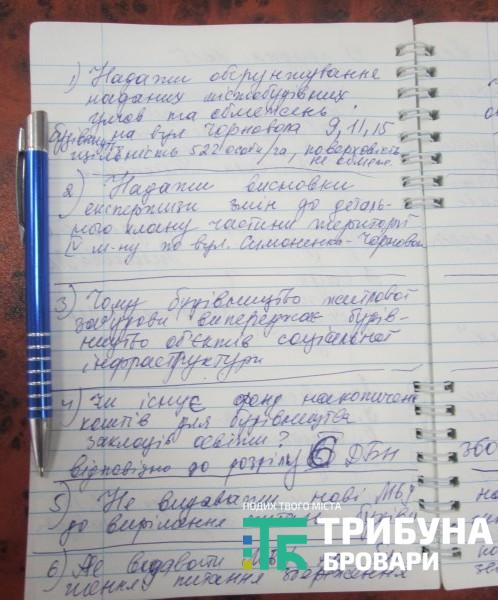 1) Надати обгрунтування
наданих містобудівних
умов та обмежень
будівн. на вул Чорновола 9, 11, 15
щільність 522 особи/га, поверховість
не обмеж.
2) Надати висновки
експертизи змін до деталь-
ного плану частини території
IV м-ну по вул. Симоненка-Чорновола
3) Чому будівництво житлової
забудови випереджає будів-
ництво об'єктів соціальної
інфраструктури
4) Чи існує фонд накопичення
коштів для будівництва
закладів освіти?
відповідно до розділу 6 ДБН
5) Не видавати нові МБУ
до вирішення питань
6) Не видавати
питання збереження
ПОДИХ ТВОГО МІСТА
ТРИБУНА
БРОВАРИ